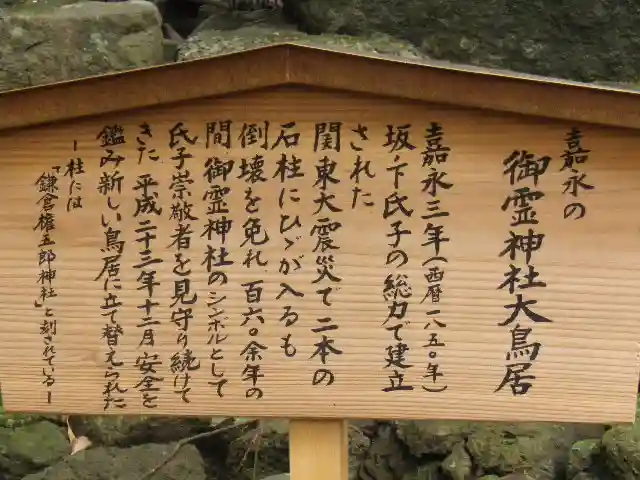 嘉永の
御霊神社大鳥居
嘉永三年(西暦一八五〇年)
坂ノ下氏子の総力で建立
された
関東大震災で二本の
石柱にひびが入るも
倒壊を免れ百六〇余年の
間御霊神社のシンボルとして
氏子崇敬者を見守り続けて
きた 平成二十三年十二月安全を
鑑み新しい鳥居に立て替えられた
ー柱には
「鎌倉権五郎神社」と刻されているー